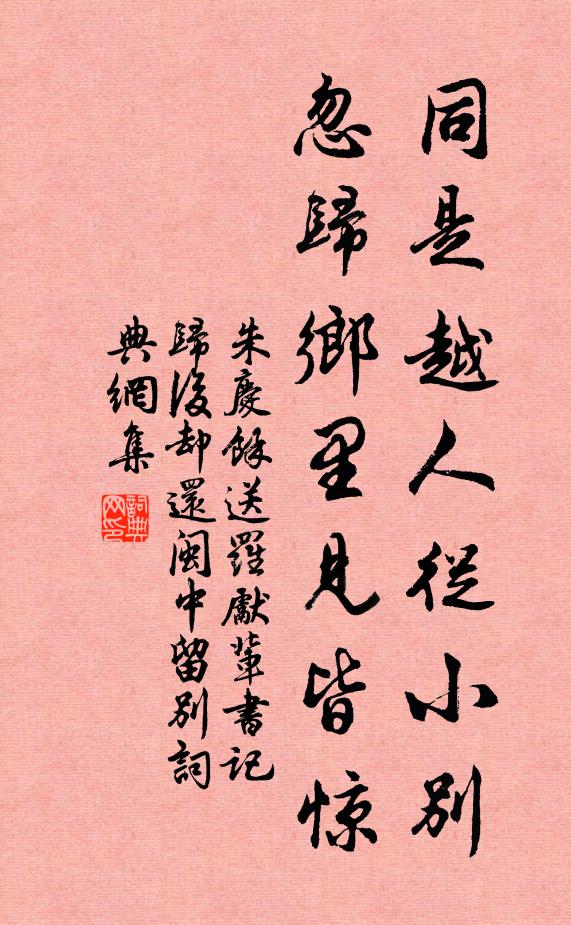 同是越人從小別
忽歸鄉里見皆惊
朱慶餘送羅獻輩書記
歸後却還閩中留別詞
典網集
詞典
网印